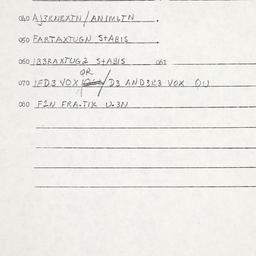 040 AJ3RNEXTN/ANIMLTN.
050 FARTAXTUGN STABIS
060 IB3RAXTUG2 STABIS 061
OR
070 IFD3 VOX / D3 AND3R3 VOX QU
080 FIN FRATIK U3N